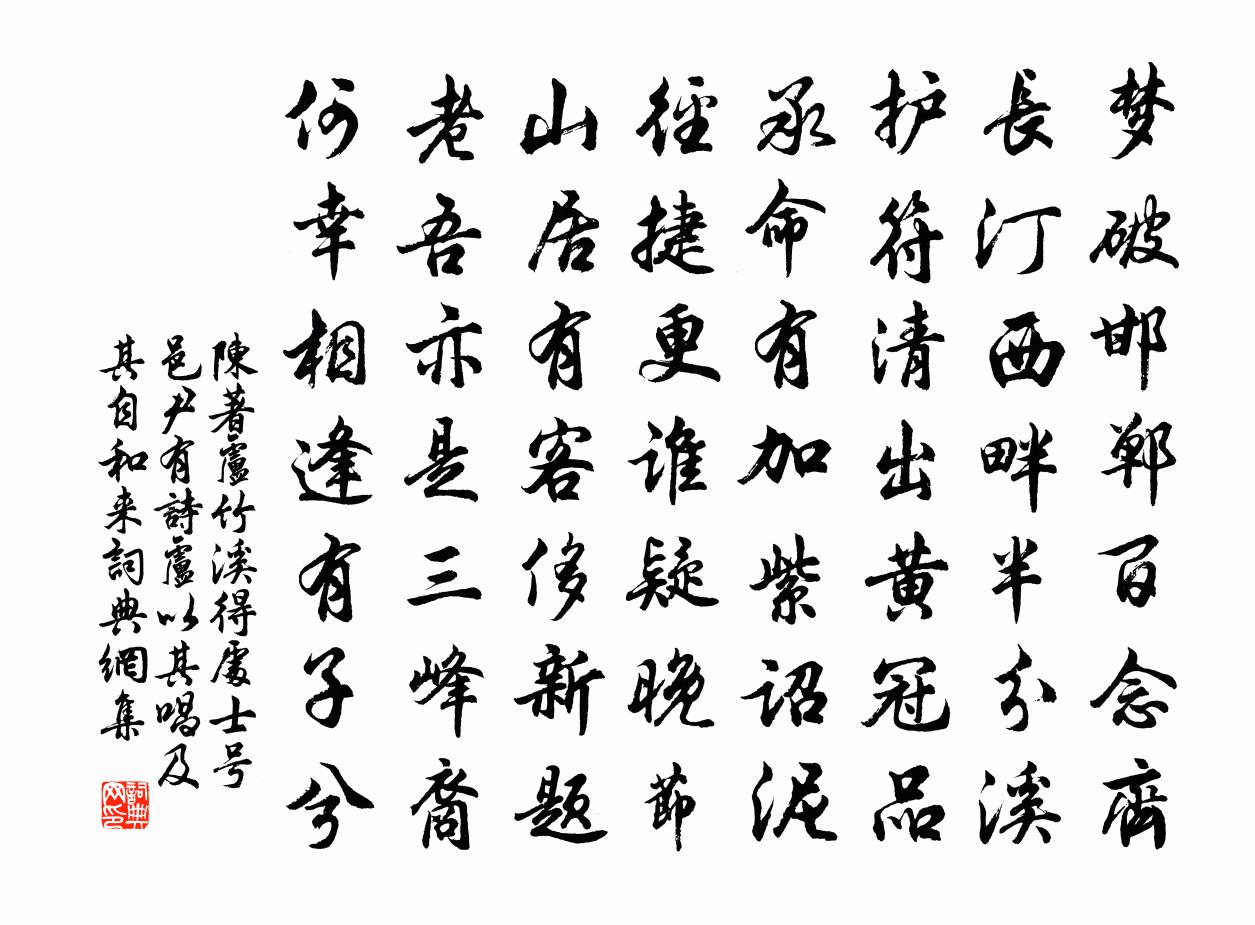 梦破邯郸百念齊
長汀西畔半分溪
护符清出黄冠品
承命有加紫诏泥
徑捷更谁疑晚節
山居有客侈新题
老吾亦是三峰裔
何幸相逢有子兮
陳著盧竹溪得處士号
邑尹有詩盧以其唱及
其自和来詞典網集
詞典网印